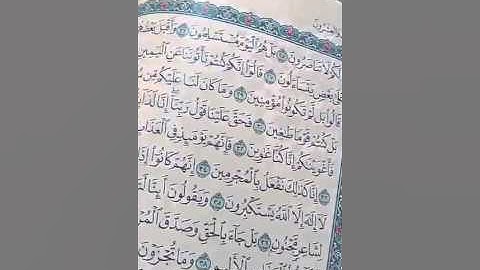 والعشرون
لَكُمْ لَا تَنَاصَرُونَ ٢٥ بَلْ هُمُ الْيَوْمَ مُسْتَسْلِمُونَ ٢٦ وَأَقْبَلَ بَعْضُهُمْ
عَلَىٰ بَعْضٍ يَتَسَاءَلُونَ ٢٧ قَالُوا إِنَّكُمْ كُنتُمْ تَأْتُونَنَا عَنِ الْيَمِينِ
قَالُوا بَل لَّمْ تَكُونُوا مُؤْمِنِينَ ٢٩ وَمَا كَانَ لَنَا عَلَيْكُم مِّن
بَلْ كُنتُمْ قَوْمًا طَاغِينَ ٣٠ فَحَقَّ عَلَيْنَا قَوْلُ رَبِّنَا إِنَّا
فَأَغْوَيْنَاكُمْ إِنَّا كُنَّا غَاوِينَ ٣٢ فَإِنَّهُمْ يَوْمَئِذٍ فِي الْعَذَابِ
إِنَّا كَذَٰلِكَ نَفْعَلُ بِالْمُجْرِمِينَ ٣٤ إِنَّهُمْ كَانُوا إِذَا
لَا إِلَٰهَ إِلَّا اللَّهُ يَسْتَكْبِرُونَ ٣٥ وَيَقُولُونَ أَئِنَّا
لِشَاعِرٍ مَّجْنُونٍ ٣٦ بَلْ جَاءَ بِالْحَقِّ وَصَدَّقَ
الْأَلِيمِ ٣٨ وَمَا تُجْزَوْنَ